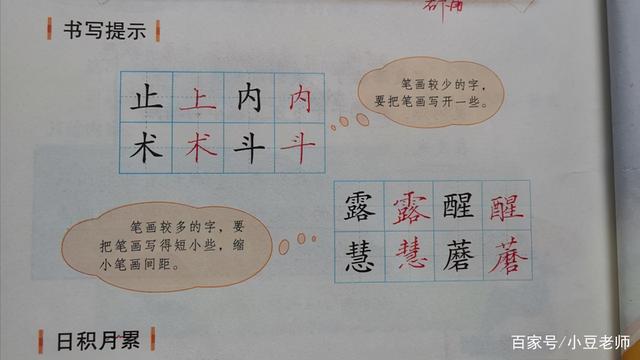 书写提示
止 止 内 内
术 术 斗 斗
笔画较少的字，
要把笔画写开一些。
露 露 醒 醒
慧 慧 蘑 蘑
笔画较多的字，要
把笔画写得短小些，缩
小笔画间距。
日积月累
百家号/小豆老师